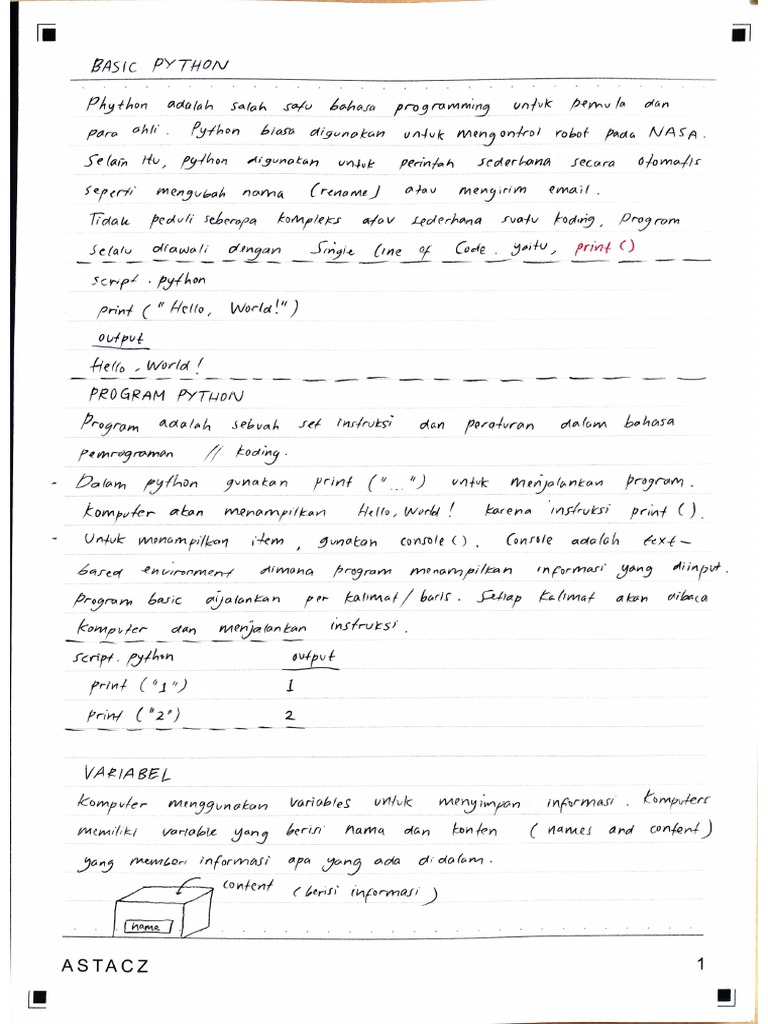 BASIC PYTHON
Phython adalah salah satu bahasa programming untuk pemula dan
para ahli. Python biasa digunakan untuk mengontrol robot pada NASA.
Selain itu, python digunakan untuk perintah sederhana secara otomatis
seperti mengubah nama (rename) atau mengirim email.
Tidak peduli seberapa kompleks atau sederhana suatu koding, Program
selalu diawali dengan Single line of Code. yaitu, print ()
script. python
print ("Hello, World!")
output
Hello, World!
PROGRAM PYTHON
Program adalah sebuah set instruksi dan peraturan dalam bahasa
pemrograman // koding.
- Dalam python gunakan print ("...") untuk menjalankan program.
Komputer akan menampilkan Hello, World! karena instruksi print ().
- Untuk menampilkan item, gunakan console(). Console adalah text-
based environment dimana program menampilkan informasi yang diinput.
Program basic dijalankan per kalimat/baris. Setiap kalimat akan dibaca
komputer dan menjalankan instruksi.
script. python output
print ("1") 1
print ("2") 2
VARIABEL
Komputer menggunakan variables untuk menyimpan informasi. Komputers
memiliki variable yang berisi nama dan konten (names and content)
yang memberi informasi apa yang ada didalam.
content (berisi informasi)
name
ASTACZ 1